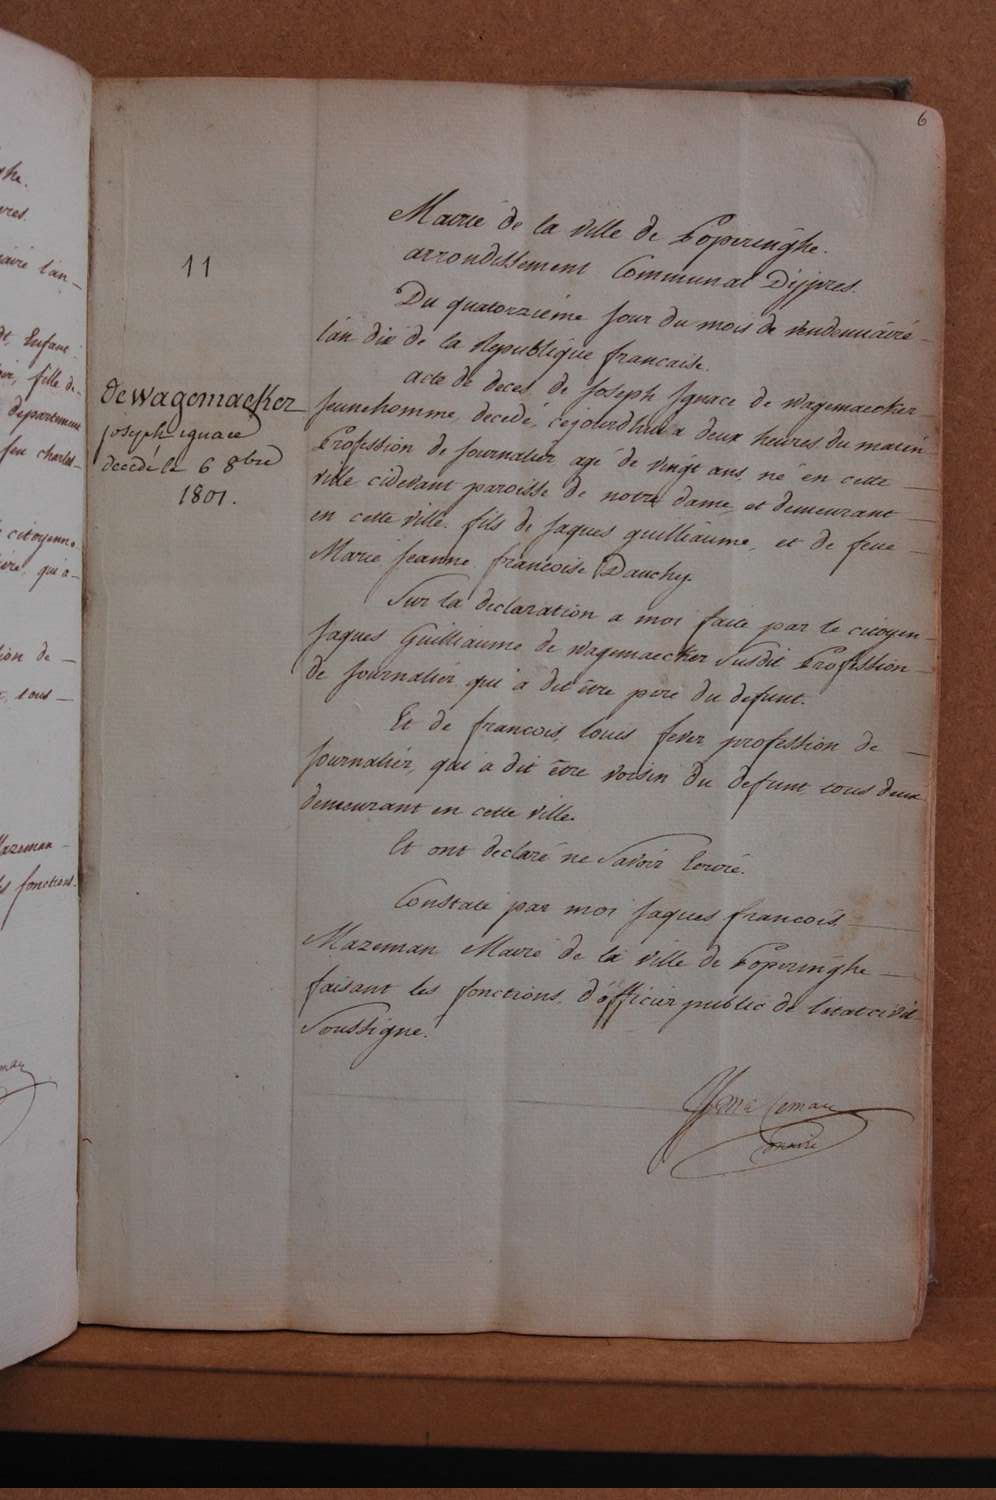 6
Mairie de la ville de Poperinghe.
arrondissement Communal D'ijpres.
11
Du quatorzieme jour du mois de vendemiaire
l'an dix de la Republique francaise.
acte de deces de Joseph Ignace de wagemaecker
Jeune homme, decedé, cejourdhui a deux heures du matin
Profession de Journalier agé de vingt ans, né en cette
ville cidevant paroisse de notre dame, et demeurant
en cette ville. fils de Jaques guilliaume, et de feue
Marie Jeanne francoise Dauchy.
deWagemaeker
joseph ignace
décédé le 6 8bre
1801.
Sur la declaration a moi faite par le citoyen
Jaques Guilliaume de wagemaecker Susdit Profession
de Journalier qui a dit être pere du defunt.
Et de francois, louis fever profession de
Journalier, qui a dit être voisin du defunt tous deux
demeurant en cette ville.
Et ont declaré ne Savoir Ecrire.
Constaté par moi Jaques francois
Mazeman Maire de la ville de Poperinghe
faisant les fonctions d'officier public de l'etat civil
Soussigné.
maire
ghe.
citoyenne
qui a
fille de
departement
feu charles
tion de
tous
Mazeman
fonctions